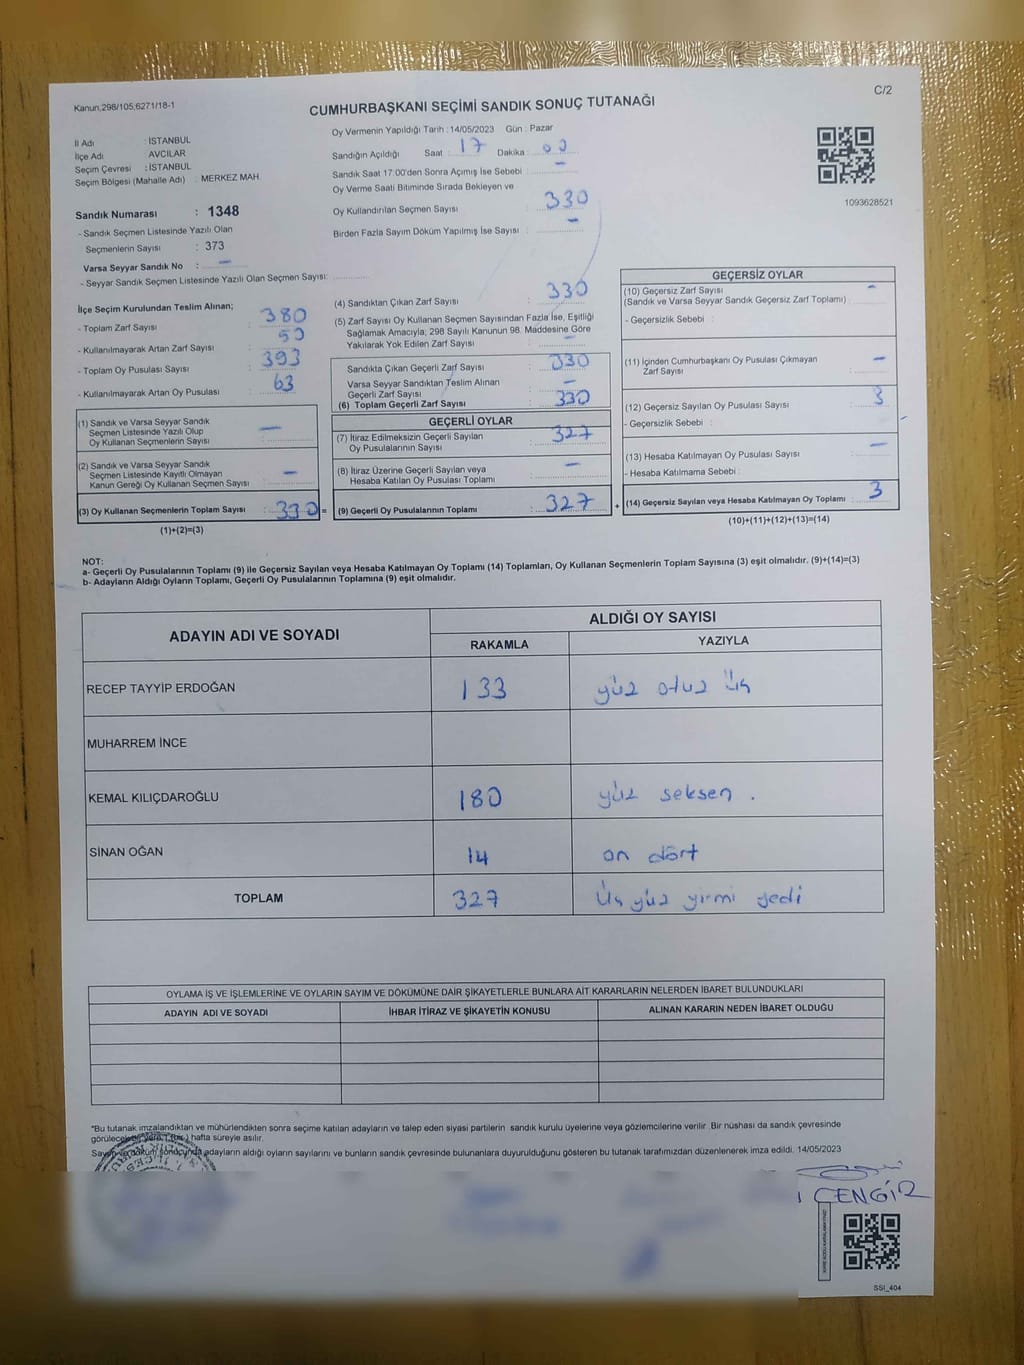 Kanun,298/105,6271/18-1
C/2
CUMHURBAŞKANI SEÇİMİ SANDIK SONUÇ TUTANAĞI
İl Adı : İSTANBUL
İlçe Adı AVCILAR
Seçim Çevresi : İSTANBUL
Seçim Bölgesi (Mahalle Adı) : MERKEZ MAH.
Sandık Numarası : 1348
- Sandık Seçmen Listesinde Yazılı Olan
Seçmenlerin Sayısı : 373
Varsa Seyyar Sandık No : –
- Seyyar Sandık Seçmen Listesinde Yazılı Olan Seçmen Sayısı:
Oy Vermenin Yapıldığı Tarih : 14/05/2023 Gün : Pazar
Sandığın Açıldığı Saat : 17 Dakika : 00
Sandık Saat 17:00'den Sonra Açımış İse Sebebi : –
Oy Verme Saati Bitiminde Sırada Bekleyen ve
Oy Kullandırılan Seçmen Sayısı : 330
Birden Fazla Sayım Döküm Yapılmış İse Sayısı : –
1093628521
İlçe Seçim Kurulundan Teslim Alınan;
- Toplam Zarf Sayısı : 380
- Kullanılmayarak Artan Zarf Sayısı : 50
- Toplam Oy Pusulası Sayısı : 393
- Kullanılmayarak Artan Oy Pusulası : 63
(1) Sandık ve Varsa Seyyar Sandık
Seçmen Listesinde Yazılı Olup
Oy Kullanan Seçmenlerin Sayısı : –
(2) Sandık ve Varsa Seyyar Sandık
Seçmen Listesinde Kayıtlı Olmayan
Kanun Gereği Oy Kullanan Seçmen Sayısı : –
(3) Oy Kullanan Seçmenlerin Toplam Sayısı : 330 =
(1)+(2)=(3)
(4) Sandıktan Çıkan Zarf Sayısı : 330
(5) Zarf Sayısı Oy Kullanan Seçmen Sayısından Fazla İse, Eşitliği
Sağlamak Amacıyla; 298 Sayılı Kanunun 98. Maddesine Göre
Yakılarak Yok Edilen Zarf Sayısı : –
Sandıkta Çıkan Geçerli Zarf Sayısı : 330
Varsa Seyyar Sandıktan Teslim Alınan
Geçerli Zarf Sayısı : –
(6) Toplam Geçerli Zarf Sayısı : 330
GEÇERLİ OYLAR
(7) İtiraz Edilmeksizin Geçerli Sayılan
Oy Pusulalarının Sayısı : 327
(8) İtiraz Üzerine Geçerli Sayılan veya
Hesaba Katılan Oy Pusulası Toplamı : –
(9) Geçerli Oy Pusulalarının Toplamı : 327 +
GEÇERSİZ OYLAR
(10) Geçersiz Zarf Sayısı –
(Sandık ve Varsa Seyyar Sandık Geçersiz Zarf Toplamı) :
- Geçersizlik Sebebi :
(11) İçinden Cumhurbaşkanı Oy Pusulası Çıkmayan –
Zarf Sayısı :
(12) Geçersiz Sayılan Oy Pusulası Sayısı : 3
- Geçersizlik Sebebi :
(13) Hesaba Katılmayan Oy Pusulası Sayısı : –
- Hesaba Katılmama Sebebi :
(14) Geçersiz Sayılan veya Hesaba Katılmayan Oy Toplamı : 3
(10)+(11)+(12)+(13)=(14)
NOT:
a- Geçerli Oy Pusulalarının Toplamı (9) ile Geçersiz Sayılan veya Hesaba Katılmayan Oy Toplamı (14) Toplamları, Oy Kullanan Seçmenlerin Toplam Sayısına (3) eşit olmalıdır. (9)+(14)=(3)
b- Adayların Aldığı Oyların Toplamı, Geçerli Oy Pusulalarının Toplamına (9) eşit olmalıdır.
ADAYIN ADI VE SOYADI
ALDIĞI OY SAYISI
RAKAMLA YAZIYLA
RECEP TAYYİP ERDOĞAN 133 yüz otuz üç
MUHARREM İNCE
KEMAL KILIÇDAROĞLU 180 yüz seksen .
SİNAN OĞAN 14 on dört
TOPLAM 327 Üç yüz yirmi yedi
OYLAMA İŞ VE İŞLEMLERİNE VE OYLARIN SAYIM VE DÖKÜMÜNE DAİR ŞİKAYETLERLE BUNLARA AİT KARARLARIN NELERDEN İBARET BULUNDUKLARI
ADAYIN ADI VE SOYADI İHBAR İTİRAZ VE ŞİKAYETİN KONUSU ALINAN KARARIN NEDEN İBARET OLDUĞU
"Bu tutanak imzalandıktan ve mühürlendikten sonra seçime katılan adayların ve talep eden siyasi partilerin sandık kurulu üyelerine veya gözlemcilerine verilir. Bir nüshası da sandık çevresinde
hafta süreyle asılır.
adayların aldığı oyların sayılarını ve bunların sandık çevresinde bulunanlara duyurulduğunu gösteren bu tutanak tarafımızdan düzenlenerek imza edildi. 14/05/2023
CENGİZ
SSI_404